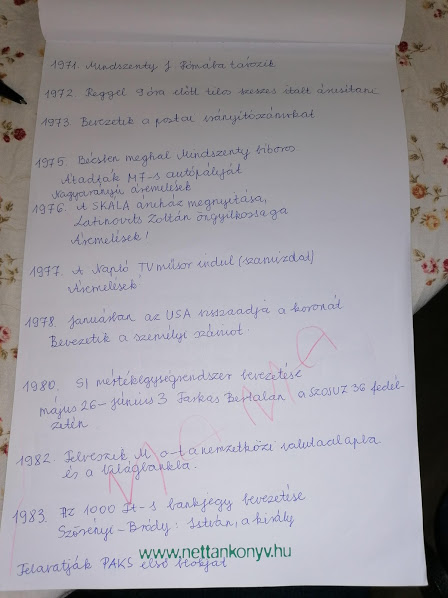 1971. Mindszenty J. Rómába távozik
1972. Reggel 9 óra előtt tilos szeszes italt árusítani
1973 Bevezetik a postai irányítószámokat
1975. Bécsben meghal Mindszenty bíboros
Átadják M7-s autópályát
Nagyarányú áremelések
1976. A SKÁLA áruház megnyitása,
Latinovits Zoltán öngyilkossága
Áremelések!
1977. A Napló TV műsor indul (szamizdat)
Áremelések!
1978. januárban az USA visszaadja a koronát
Bevezetik a személyi számot.
1980. SI mértékegységrendszer bevezetése
május 26-június 3 Farkas Bertalan a SZOSUZ 36 fedél-
zetén
1982 Felveszik M o-t a nemzetközi valutaalapba
és a világbankba.
1983. Az 1000 Ft-s bankjegy bevezetése
Szörényi-Bródy: István, a király
www.nettankonyv.hu
Felavatják PAKS első blokját
MAMA